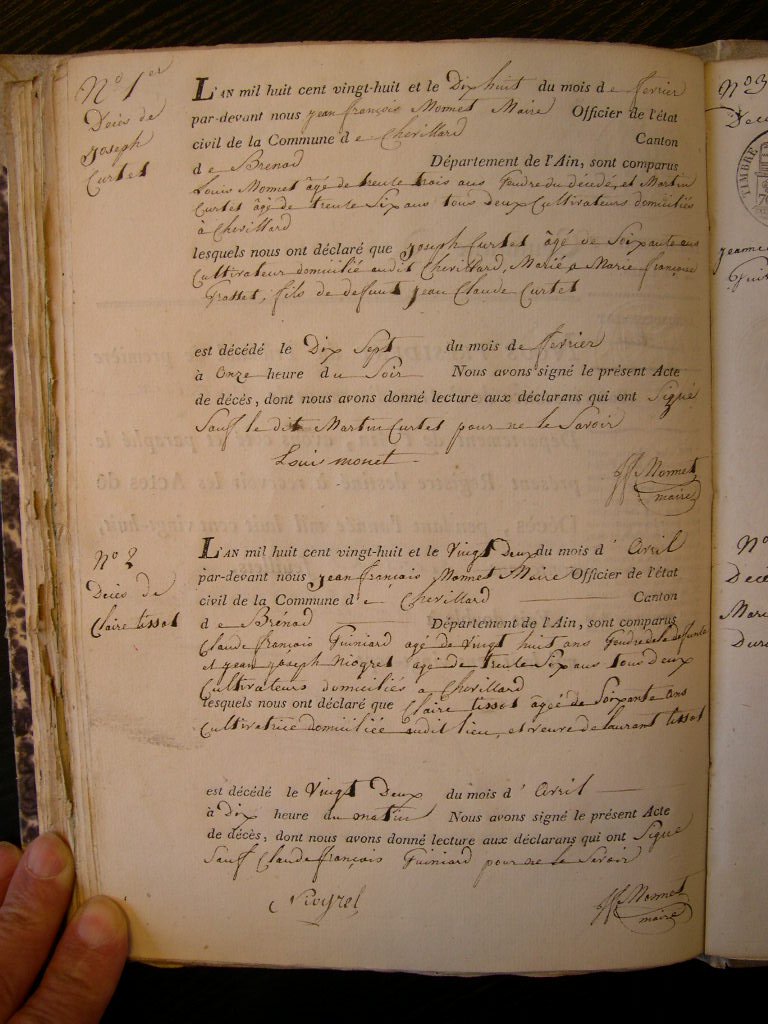 No 1er
Décès de
Joseph
Curtet
L'AN mil huit cent vingt-huit et le Dixhuit du mois de fevrier
par-devant nous jean françois Monnet Maire Officier de l'état
civil de la Commune de Chevillard Canton
de Brenod Département de l'Ain, sont comparus
Louis Monnet âgé de trente trois ans Gendre du décédé, et Martin
Curtet âgé de trente Six ans tous deux Cultivateurs domiciliés
à Chevillard
lesquels nous ont déclaré que joseph Curtet âgé de Soixante ans
Cultivateur domicilié audit Chevillard, Marié a Marie françoise
Grosset, fils de defunt jean Claude Curtet
est décédé le Dix Sept du mois de fevrier
à Onze heure du Soir Nous avons signé le présent Acte
de décès, dont nous avons donné lecture aux déclarans qui ont Signé
Sauf le dit Martin Curtet pour ne le Savoir
Louis monet
jff Monnet
maire
No 2
Décès de
Claire tissot
L'AN mil huit cent vingt-huit et le Vingt Deux du mois d' Avril
par-devant nous jean françois Monnet Maire Officier de l'état
civil de la Commune de Chevillard Canton
de Brenod Département de l'Ain, sont comparus
Claude françois Guiniard agé de Vingt huit ans Gendre de la defunte
et jean joseph Niogret agé de trente Six ans tous deux
Cultivateurs domiciliés a Chevillard
lesquels nous ont déclaré que Claire tissot âgée de Soixante ans
Cultivatrice domiciliée audit lieu, et veuve de laurant tissot
est décédé le Vingt Deux du mois d' Avril
à Dix heure du matin Nous avons signé le présent Acte
de décès, dont nous avons donné lecture aux déclarans qui ont Signé
Sauf Claude françois Guiniard pour ne le Savoir
Niogret
jff Monnet
maire
No 3
TIMBRE